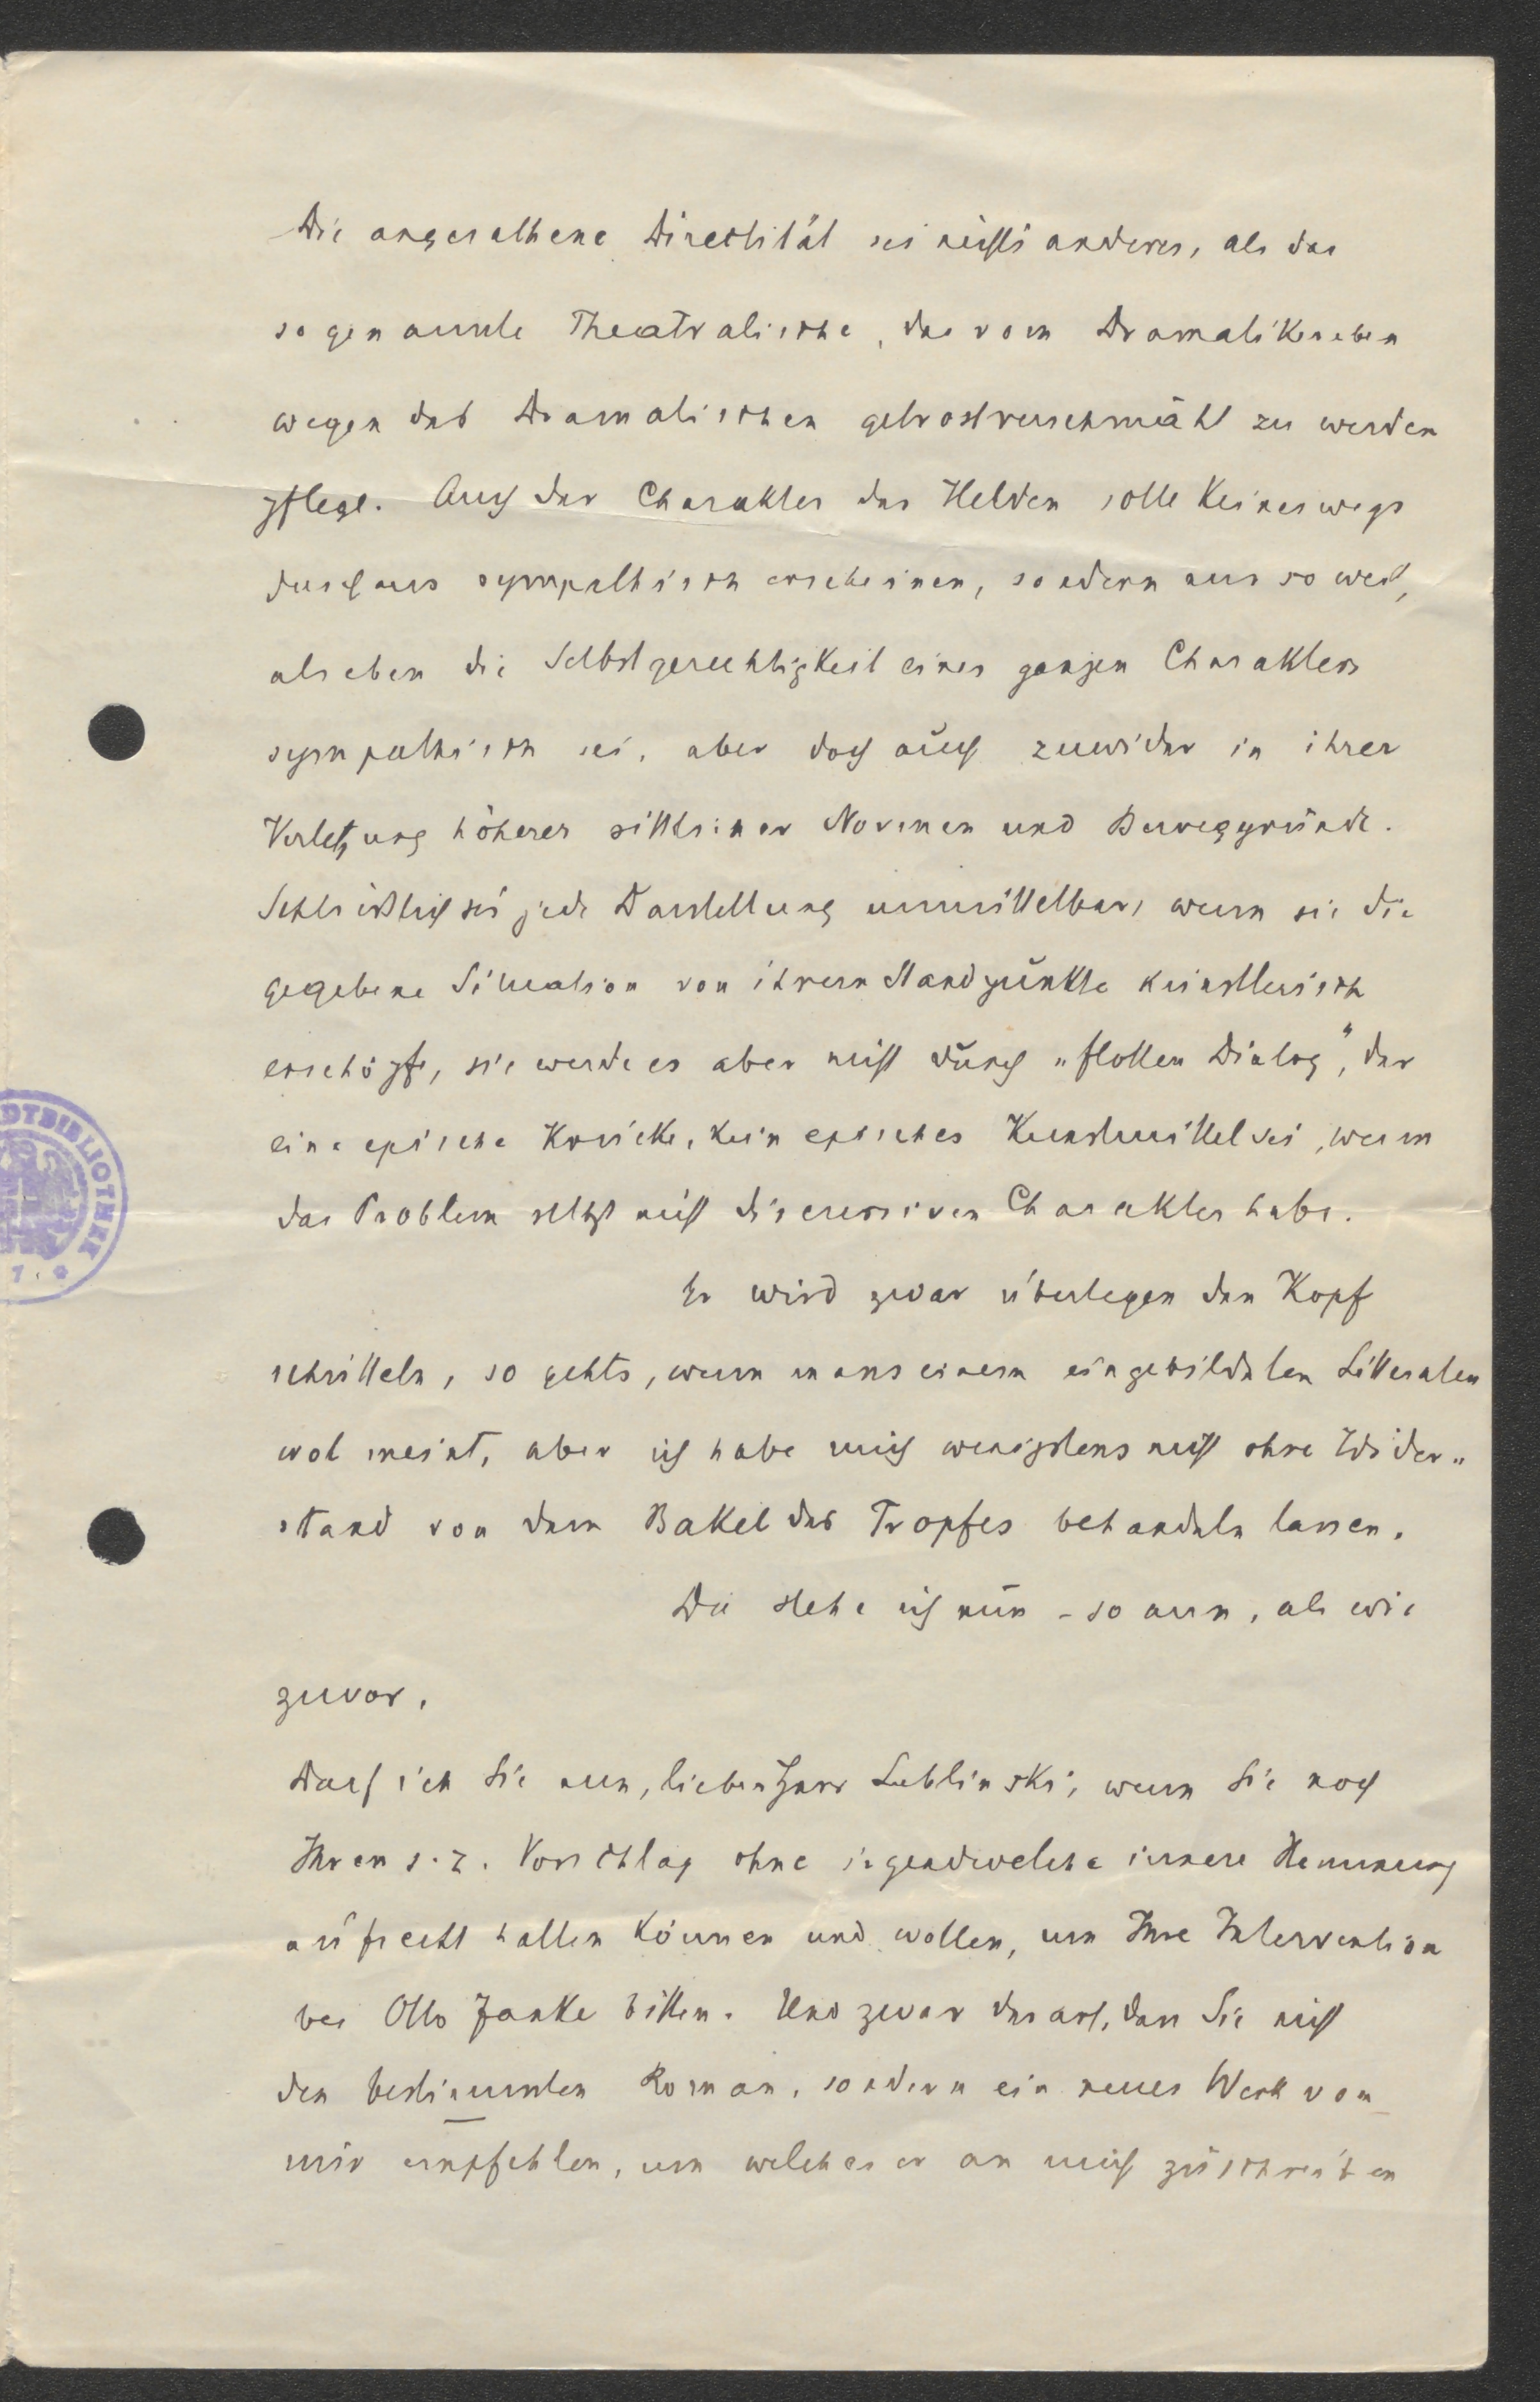 Die angerathene Direktität sei nichts anderes, als das
sogenannte Theatralische, das vom Dramatiker eben
wegen des Dramatischen getrost verschmäht zu werden
pflege. Auch der Charakter des Helden solle keineswegs
durchaus sympathisch erscheinen, sondern nur so weit,
als eben die Selbstgerechtigkeit eines ganzen Charakters
sympathisch sei, aber doch auch zuwider in ihrer
Verletzung höherer sittlicher Normen und Beweggründe.
Schließlich sei jede Darstellung unmittelbar, wenn sie die
gegebene Situation von ihrem Standpunkte künstlerisch
erschöpfe, sie werde es aber nicht durch „flotten Dialog“, der
eine epische Krücke, kein episches Kunstmittel sei, wenn
das Problem selbst nicht discursiven Charakter habe.
Er wird zwar überlegen den Kopf
schütteln, so gehts, wenn mans einem eingebildeten Litteraten
wol meint, aber ich habe mich wenigstens nicht ohne Wider-
stand von dem Bakel des Tropfes behandeln lassen.
Da stehe ich nun - so arm, als wie
zuvor.
Darf ich Sie nun, lieber Herr Lublinski, wenn Sie noch
Ihren s. z. Vorschlag ohne irgendwelche innere Hemmung
aufrecht halten können und wollen, um Ihre Intervention
bei Otto Janke bitten. Und zwar derart, dass Sie nicht
den bestimmten Roman, sondern ein neues Werk von
mir empfehlen, um welches er an mich zu schreiben